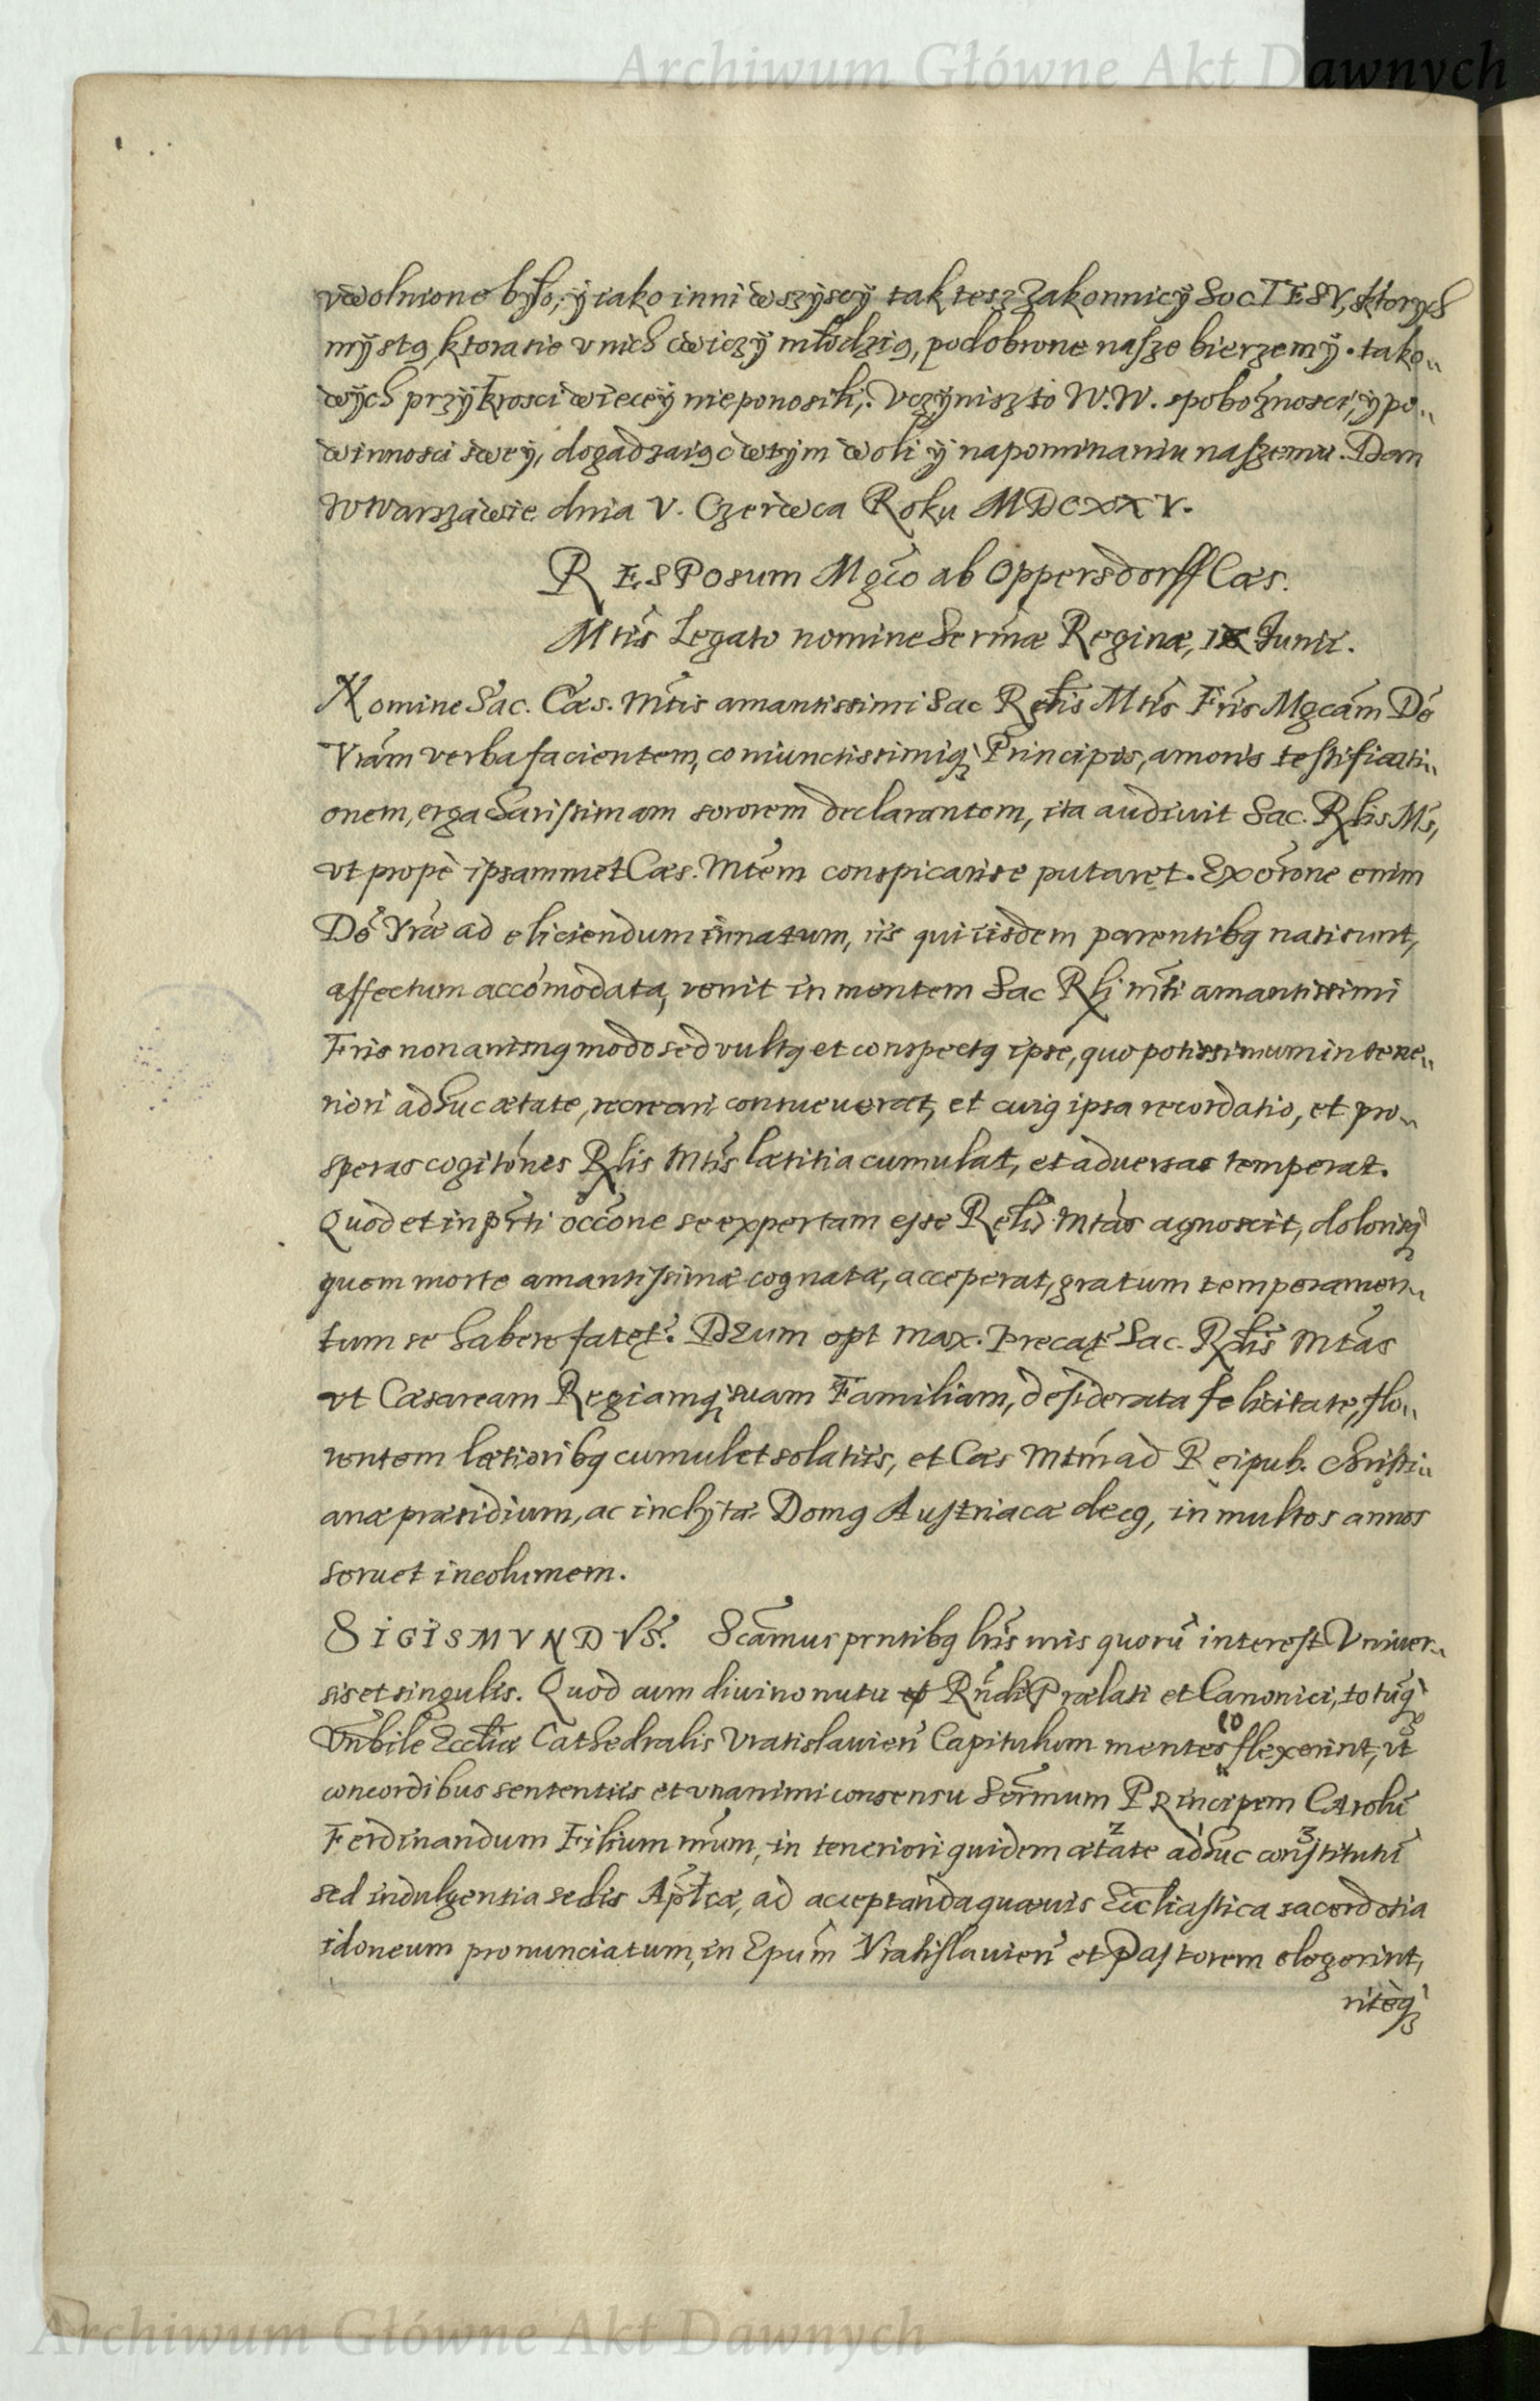 Archiwum Główne Akt Dawnych
vwolnione było, ÿ iako inni wszÿscÿ tak tesz Zakonnicÿ Soc IESV, ktorych
mÿ stą, ktora sie v nich cwiczÿ młodzią, pod obrone nasze bierzemÿ. tako„
wÿch przÿkrosci wiecéÿ nie ponosili. Vczÿnisz to W. W. spobożnosci, ÿ po„
winnosci swéÿ, dogadzaiąc wtÿm woli ÿ napominaniu naszemu. Dan
W Warszawie dnia V. Czerwca Roku MDCXXV.
RESPosum Mgco ab Oppersdorff Cæs.
Mtis Legato nomine Sermæ Reginæ, Junii.
Nomine Sac. Cæs. Mtis amantissimi Sac Rglis Mtis Fris Mgcam Do
Vram verba facientem, coniunctissimiq Principis, amoris testificati„
onem, erga charissimam sororem declarantem, ita audivit Sac. Rlis Ms,
vt propè ipsammet Cæs. Mtem conspicari se putaret. Ex orone enim
Do Vræ ad eliciendum innatum, iis qui iisdem parentibq nati sunt,
affectum accomodata, venit in mentem Sac Rli mti amantissimi
Fris non animq modo sed vultq et conspectq ipse, quo potissimum in tene„
riori adhuc ætate, recreari consueuerat, et cuiq ipsa recordatio, et pro„
speras cogitones Rlis Mtis lætitia cumulat, et aduersas temperat.
Quod et in prti occone se expertam esse Relis Mtas agnoscit, dolorisq
quem morte amantissimæ cognatæ, acceperat, gratum temperamen„
tum se habere fatet. DEum opt max. Precat Sac. Rlis Mtas
vt Cæsaream Regiamq suam Familiam, desiderata felicitate, flo„
rentem lætioribq cumulet solatiis, et Cæs Mtm ad Reipub. Christi„
anæ præsidium, ac inclytæ Domq Austriacæ decq, in multos annos
seruet incolumem.
SIGISMVNDVS. Scamus prntibq lris nris quorū interest Vniuer„
sis et singulis. Quod cum diuino nutu Rndi Prælati et Canonici, totūq
Vnbile Eccliæ Cathedralis Vratislauien Capitulum mentes eo flexerint, vt
concordibus sententiis et vnanimi consensu Sermum PRincipem CArolū
Ferdinandum Filium nrum, in teneriori quidem ætate adhuc constitutū
sed indulgentia sedis Aplicæ, ad acceptanda quæuis Eccliastica sacerdotia
idoneum pronunciatum, in Epum Vratislauien et Pastorem elegerint,
ritéq
Archiwum Główne Akt Dawnych